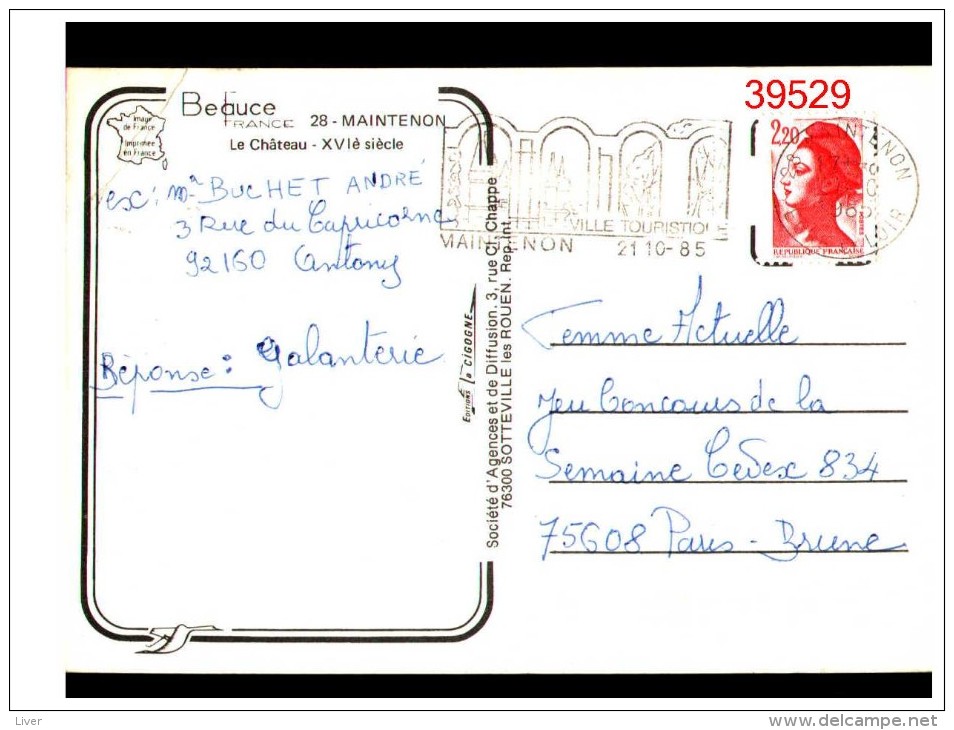 39529
Image
de France
Imprimée
en France
Beauce
FRANCE 28 - MAINTENON
Le Château - XVIè siècle
exc: Mr BUCHET ANDRÉ
3 Rue du Capricorne
92160 Antony
Réponse: Galanterie
VILLE TOURISTIQUE
MAINTENON 21 10-85
2,20
POSTES
REPUBLIQUE FRANÇAISE
EDITIONS la CIGOGNE
Société d'Agences et de Diffusion. 3, rue Cl. Chappe
76300 SOTTEVILLE les ROUEN. Rep. Int.
Femme Actuelle
Jeu Concours de la
Semaine Cedex 834
75608 Paris - Brune
Liver
www.delcampe.net